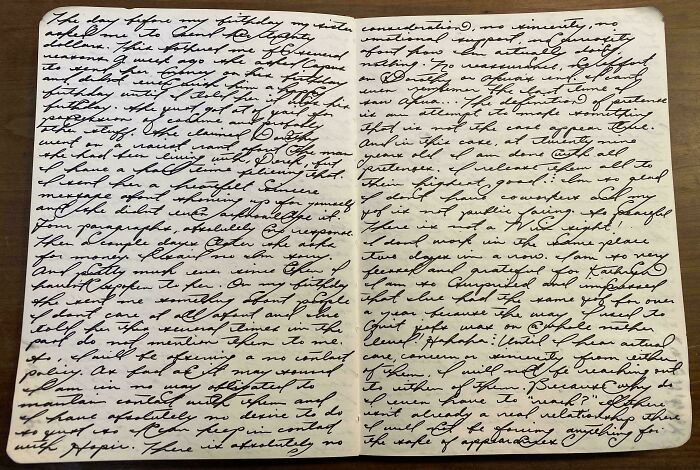 The day before my birthday my sister
asked me to send her twenty
dollars. This bothered me for several
reasons. A week ago she asked
to send her money on his birthday
and didn't even wish him a happy
birthday until I told her it was his
birthday. She just got at
of cocaine and
She claimed Dorothy
went on a racist rant about the man
she had been living with, Derek, but
I have a hard time believing that.
I sent her a heartfelt sincere
message about showing up for yourself
and she didn't even acknowledge it.
Four paragraphs, absolutely no response.
Then a couple days later she asks
for money. Again no I'm sorry.
And pretty much ever since then I
haven't spoken to her. On my birthday
she sent me something about people
I don't care at all about and I've
told her this several times in the
past do not mention them to me.
So, I will be opening a no contact
policy. As bad as it may sound
I am in no way obligated to
maintain contact with them and
I have absolutely no desire to do
so just so I can keep in contact
with There is absolutely no
consideration, no sincerity, no
emotional support, no curiosity
about how I'm actually doing
nothing. No reassurance, no effort
on Dorothy or end. I can't
even remember the last time I
saw The definition of pretense
is an attempt to make something
that is not the case appear true.
And in this case, at twenty nine
years old I am done with all
pretenses. I release them all to
their highest good. I'm so glad
I don't have coworkers and my
job is not public facing. So peaceful
There is not a
I don't work in the same place
two days in a row. I am so very
blessed and grateful for
I am so surprised and impressed
that I've had the same job for over
a year because the way I used to
quit jobs was on a whole nother
level, Hahaha! Until I hear actual
care, concern or sincerity from either
of them, I will not be reaching out
to either of them. Because why do
I even have to "reach?" If there
isn't already a real relationship there
I will not be forcing anything for
the sake of appearances